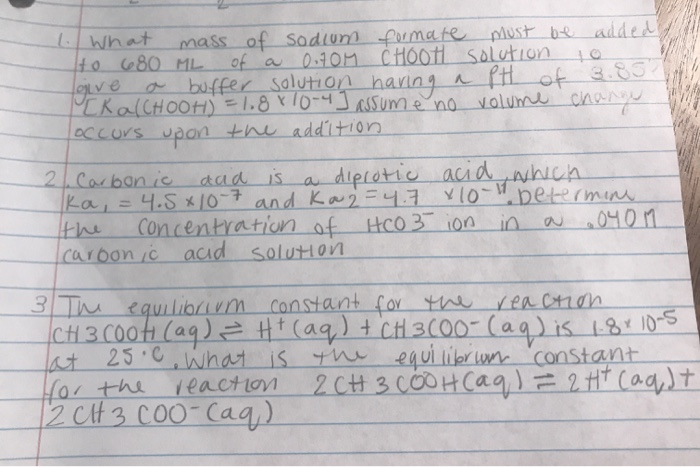 1. What mass of sodium formate must be added
to 680 ML of a 0.70M CHOOH solution to
give a buffer solution having a PH of 3.85
[Ka(CHOOH) = 1.8 x 10-4] assume no volume change
occurs upon the addition
2. Carbonic acid is a diprotic acid, which
Ka1 = 4.5 x10-7 and Ka2 = 4.7 x10-11. Determine
the concentration of HCO3- ion in a .040M
carbonic acid solution
3 The equilibrium constant for the reaction
CH3COOH (aq) ⇌ H+ (aq) + CH3COO- (aq) is 1.8x 10-5
at 25°C. What is the equilibrium constant
for the reaction 2CH3COOH(aq) ⇌ 2H+ (aq)+
2CH3COO- (aq)